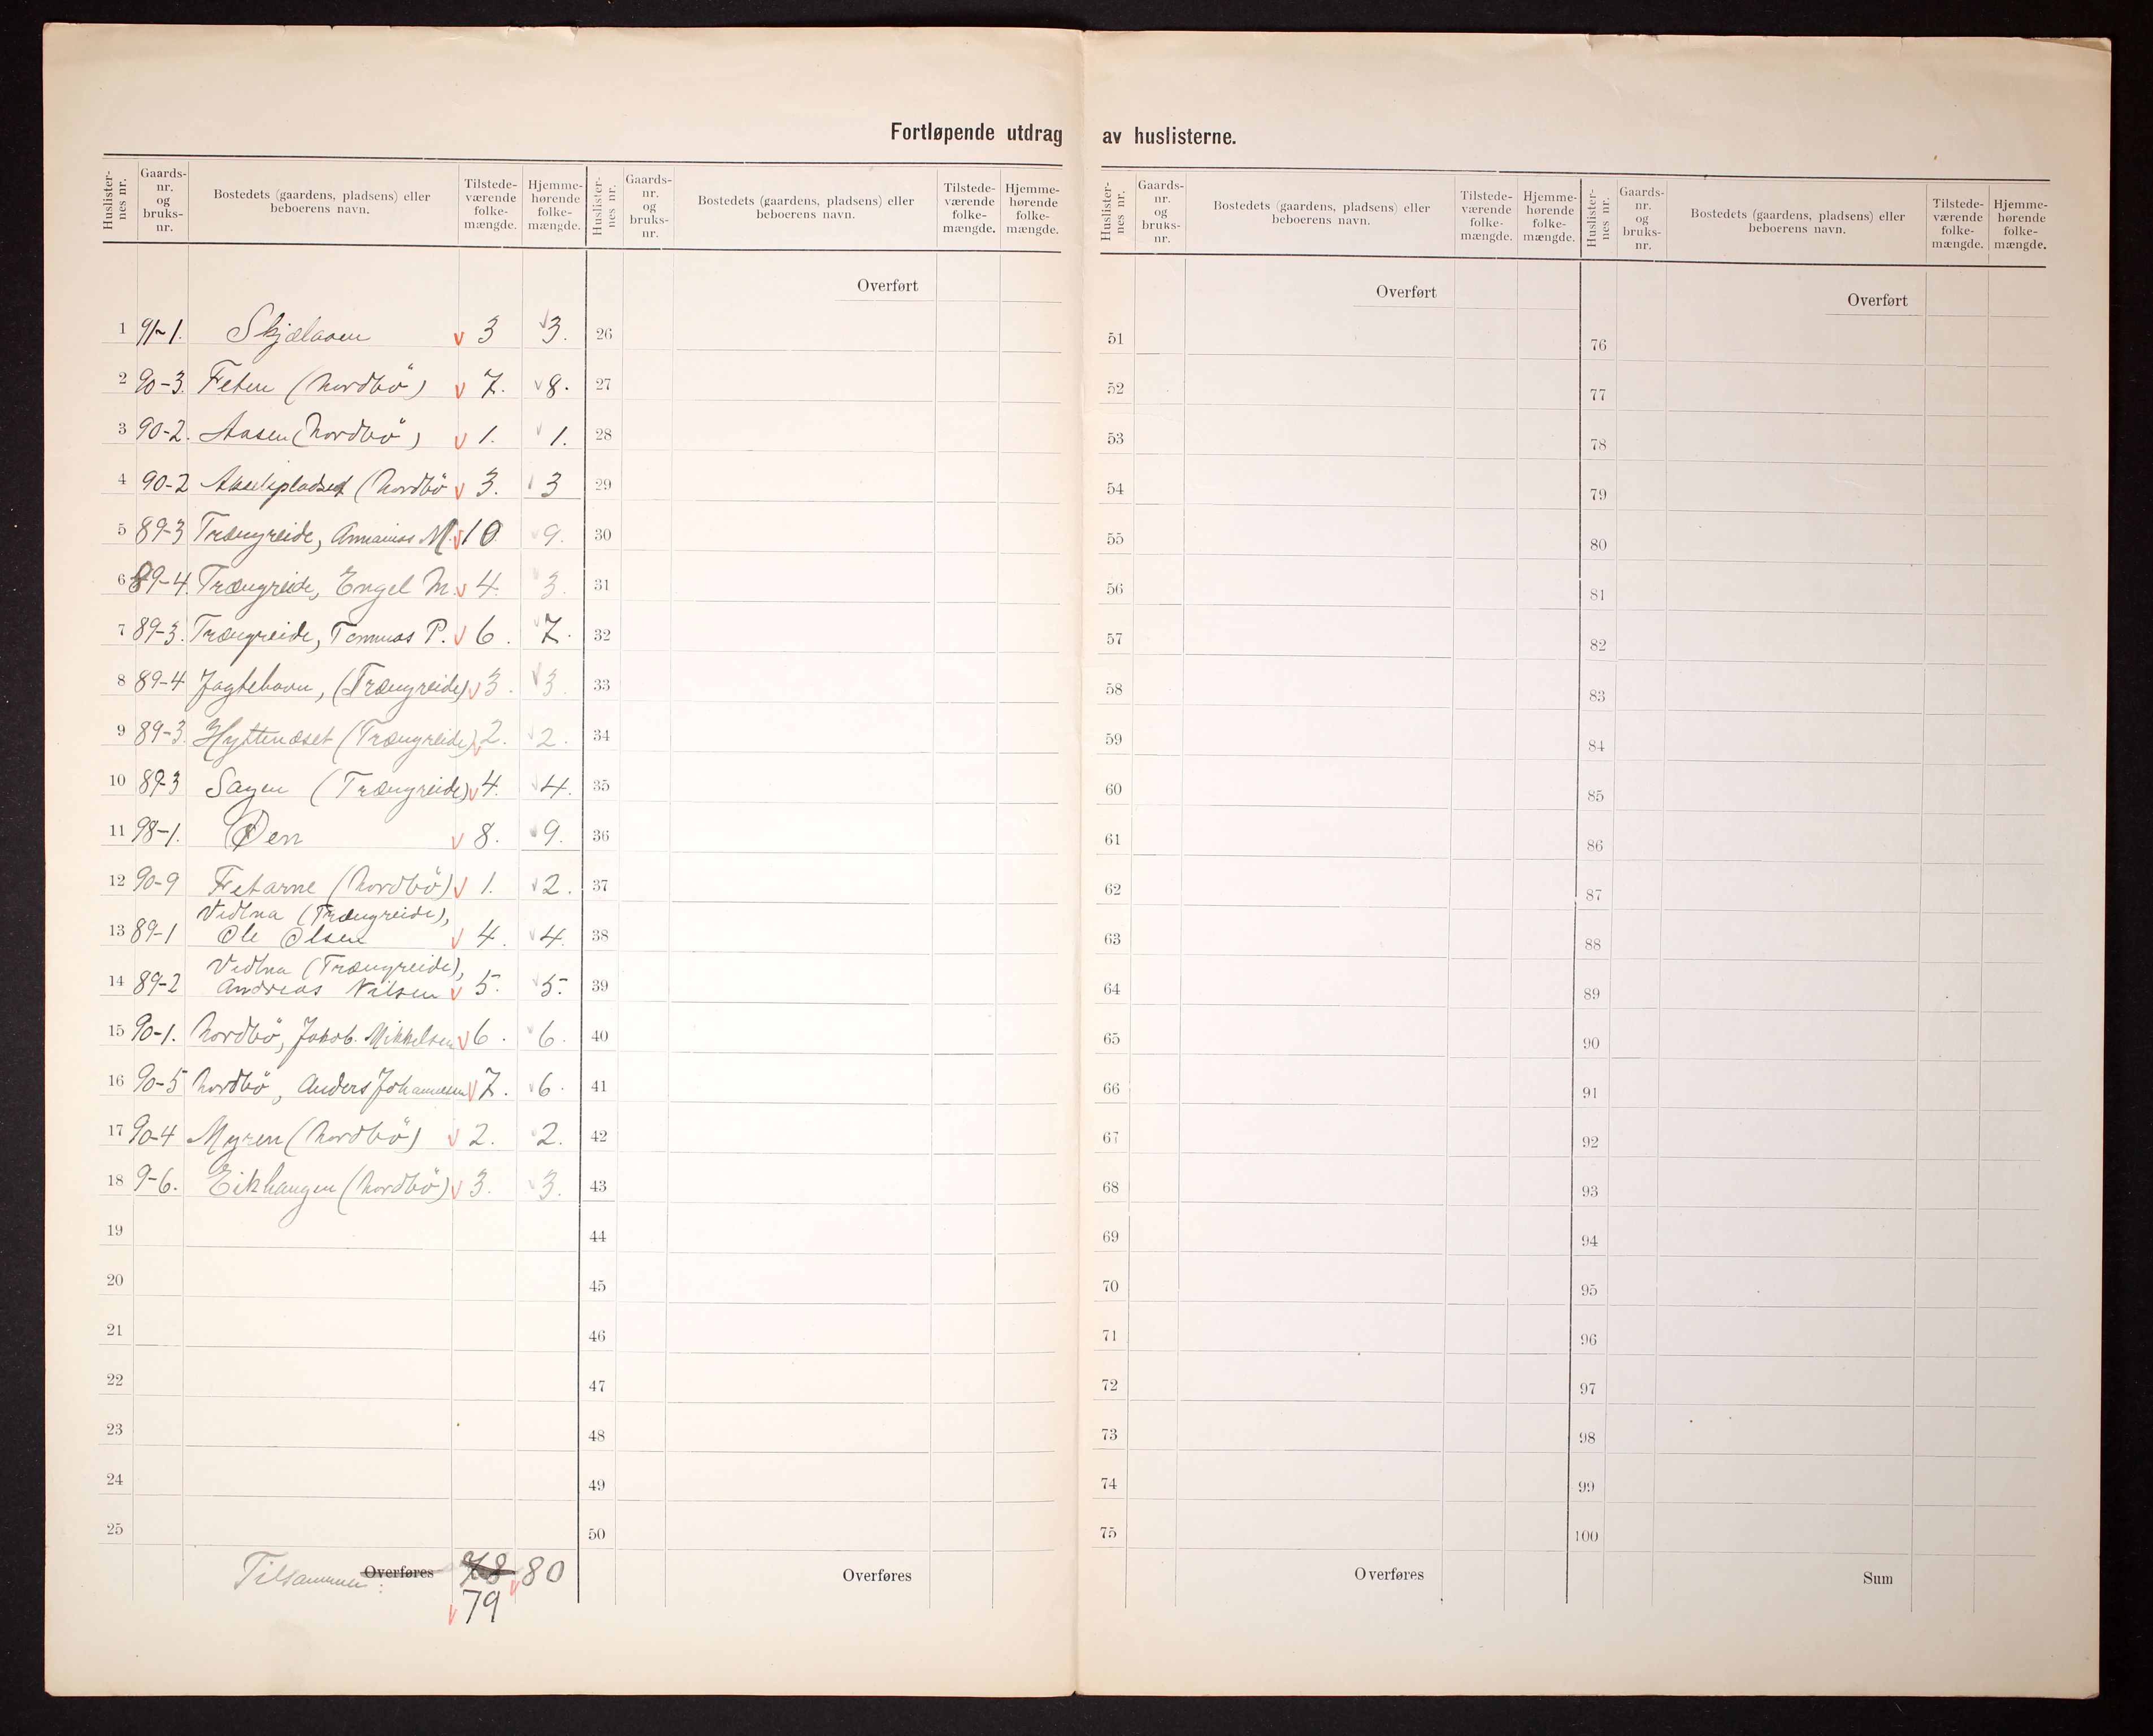 Fortløpende utdrag av huslisterne.
Huslister-nes nr. Gaards-nr. og bruks-nr. Bostedets (gaardens, pladsens) eller beboerens navn. Tilstede-værende folke-mængde. Hjemme-hørende folke-mængde.
1 91-1. Skjelaaen 3 3.
2 90-3. Feten (Nordbö) 7. 8.
3 90-2. Aasen (Nordbö) 1. 1.
4 90-2 (Nordbö 3. 3
5 89-3 Trængreide, Annanias M. 10 9.
6 89-4. Trængreide, Engel M. 4. 3.
7 89-3. Trængreide, Tommas P. 6. 7.
8 89-4 Jagtehavn, (Trængreide) 3. 3
9 89-3. Hyttenæset (Trængreide) 2. 2.
10 89-3 Sagen (Trængreide) 4. 4.
11 98-1. Øen 8. 9.
12 90-9 Fetarne (Nordbö) 1. 2.
Vedlna (Trængreide),
13 89-1 Ole Olsen 4. 4.
Vedlna (Trængreide),
14 89-2 Andreas Nilsen 5. 5.
15 90-1. Nordbö, Jakob. Mikkelsen 6. 6.
16 90-5 Nordbö, Anders Johannesen 7. 6.
17 90-4 Myren (Nordbö) 2. 2.
18 9-6. Eikhaugen (Nordbö) 3. 3.
19
20
21
22
23
24
25
Tilsammen: Overføres 78 80
79
Huslister-nes nr. Gaards-nr. og bruks-nr. Bostedets (gaardens, pladsens) eller beboerens navn. Tilstede-værende folke-mængde. Hjemme-hørende folke-mængde.
Overført
26
27
28
29
30
31
32
33
34
35
36
37
38
39
40
41
42
43
44
45
46
47
48
49
50
Overføres
Huslister-nes nr. Gaards-nr. og bruks-nr. Bostedets (gaardens, pladsens) eller beboerens navn. Tilstede-værende folke-mængde. Hjemme-hørende folke-mængde.
Overført
51
52
53
54
55
56
57
58
59
60
61
62
63
64
65
66
67
68
69
70
71
72
73
74
75
Overføres
Huslister-nes nr. Gaards-nr. og bruks-nr. Bostedets (gaardens, pladsens) eller beboerens navn. Tilstede-værende folke-mængde. Hjemme-hørende folke-mængde.
Overført
76
77
78
79
80
81
82
83
84
85
86
87
88
89
90
91
92
93
94
95
96
97
98
99
100
Sum